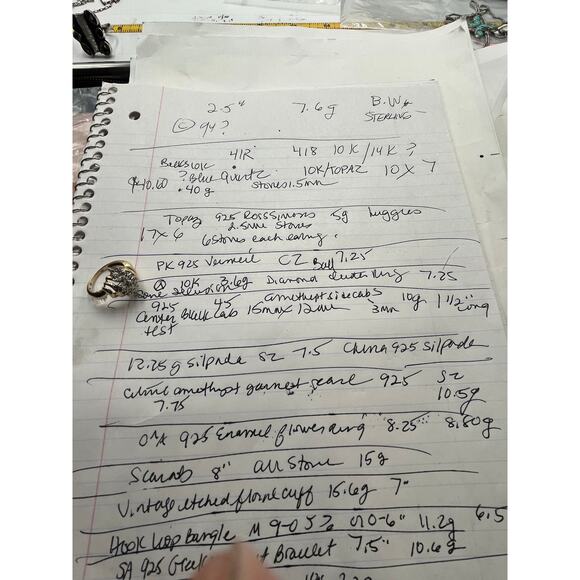 2.5" 7.6g B.W.
© 94? STERLING
41R 418 10K/14K ?
Backs 10K ? Blue Quartz 10K/TOPAZ 10 x 7
$40.60 .40g Stones 1.5mm
Topaz 925 Ross Simons 5g huggies
17x6 2.5mm Stones
6 stones each earing.
PK 925 Vermeil CZ Ball 7.25
10K 3.6g Diamond cluster ring 7.25
925 45 amethyst side cabs 10g 1 1/2" long
Center Black Cab 15mm x 12mm 3mm
test
12.25g Silpada SZ 7.5 China 925 Silpada
amethyst garnet pearl 925 SZ
7.75 10.5g
925 Enamel flower ring 8.25" 8.80g
Scarab 8" all Stone 15g
Vintage etched floral cuff 15.6g 7"
Hook loop Bangle M 9-0 5 0-6" 11.2g 6.5
SA 925 Greek Bracelet 7.5" 10.6g